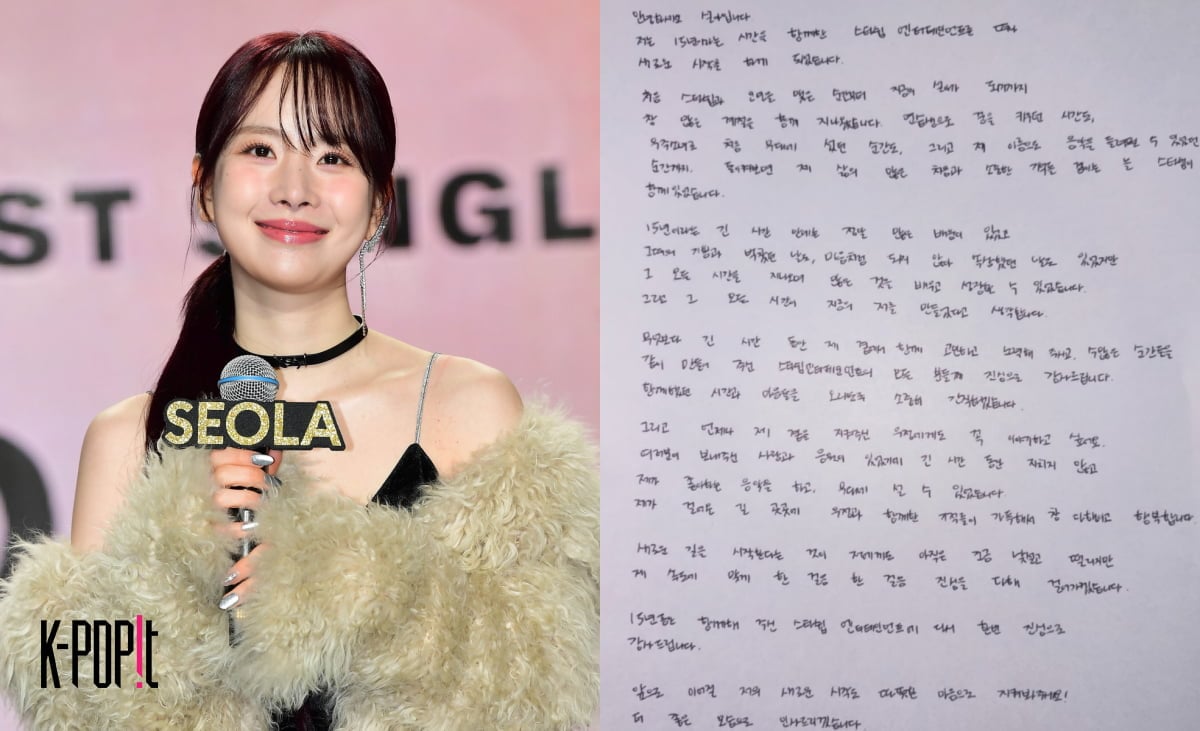 ST SINGL
SEOLA
K-POP!t
안녕하세요 설아입니다
저는 15년이라는 시간을 함께한 스타쉽 엔터테인먼트를 떠나
새로운 시작을 하게 되었습니다.
처음 스타쉽과 인연을 맺은 순간부터 지금의 설아가 되기까지
참 많은 계절을 함께 지나왔습니다. 연습생으로 꿈을 키우던 시간도,
우주소녀로 처음 무대에 섰던 순간도, 그리고 제 이름으로 음악을 들려드릴 수 있었던
순간까지. 돌아보면 제 삶의 많은 처음과 소중한 기억들 곁에는 늘 스타쉽이
함께 있었습니다.
15년이라는 긴 시간 안에는 정말 많은 배움이 있었고
기쁨과 벅찼던 날도, 마음처럼 되지 않아 속상했던 날도 있었지만
그 모든 시간을 지나오며 많은 것을 배우고 성장할 수 있었습니다.
그리고 그 모든 시간이 지금의 저를 만들었다고 생각합니다.
무엇보다 긴 시간 동안 제 곁에서 함께 고민하고 노력해 주시고, 수많은 순간들을
같이 만들어 주신 스타쉽엔터테인먼트의 모든 분들께 진심으로 감사드립니다.
함께했던 시간과 마음들을 오래도록 소중히 간직하겠습니다.
그리고 언제나 제 곁을 지켜주신 우정에게도 꼭 이야기하고 싶어요.
여러분이 보내주신 사랑과 응원이 있었기에 긴 시간 동안 지치지 않고
제가 좋아하는 음악을 하고, 무대에 설 수 있었습니다.
제가 걸어온 길 곳곳에 우정과 함께한 기억들이 가득해서 참 다행이고 행복합니다
새로운 길을 시작한다는 것이 저에게도 아직은 조금 낯설고 떨리지만
제 속도에 맞게 한 걸음 한 걸음 진심을 다해 걸어가겠습니다.
15년동안 함께해 주신 스타쉽 엔터테인먼트에 다시 한번 진심으로
감사드립니다.
앞으로 이어질 저의 새로운 시작도 따뜻한 마음으로 지켜봐주세요!
더 좋은 모습으로 인사드리겠습니다.